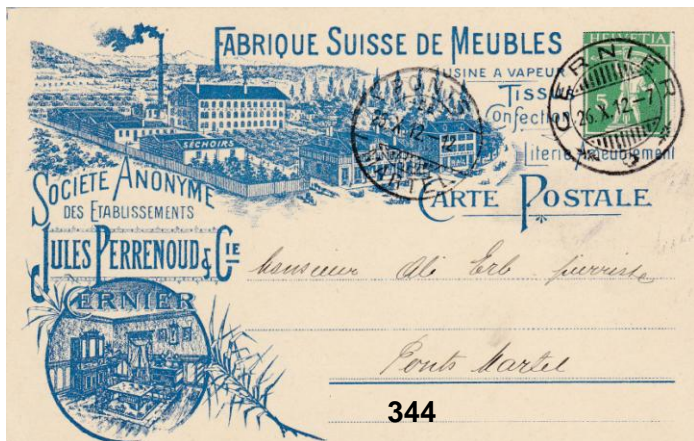 FABRIQUE SUISSE DE MEUBLES
USINE A VAPEUR
TISSUS
CONFECTION
Literie Ameublement
HELVETIA
5
CERNIER
26.X.12–7
PONTS
26.X.12–12
MARTEL
SÉCHOIRS
SOCIÉTÉ ANONYME
DES ETABLISSEMENTS
JULES PERRENOUD & CIE
CERNIER
CARTE POSTALE
Monsieur Ali Erb pierriste
Ponts Martel
344